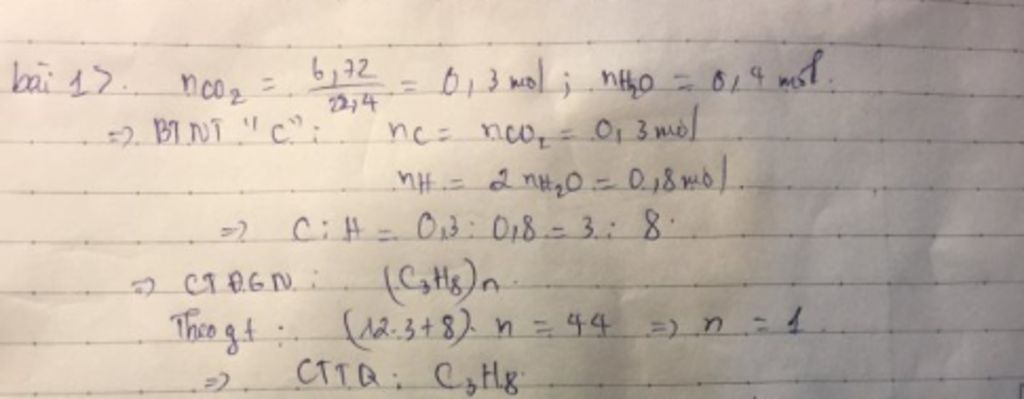 bài 1>. nCO₂ = 6,72/22,4 = 0,3 mol ; nH₂O = 0,4 mol.
=> BTNT "C": nC = nCO₂ = 0,3 mol
nH = 2 nH₂O = 0,8 mol
=> C : H = 0,3 : 0,8 = 3 : 8
=> CTĐGN : (C₃H₈)n
Theo gt : (12.3+8). n = 44 => n = 1
=> CTTQ : C₃H₈